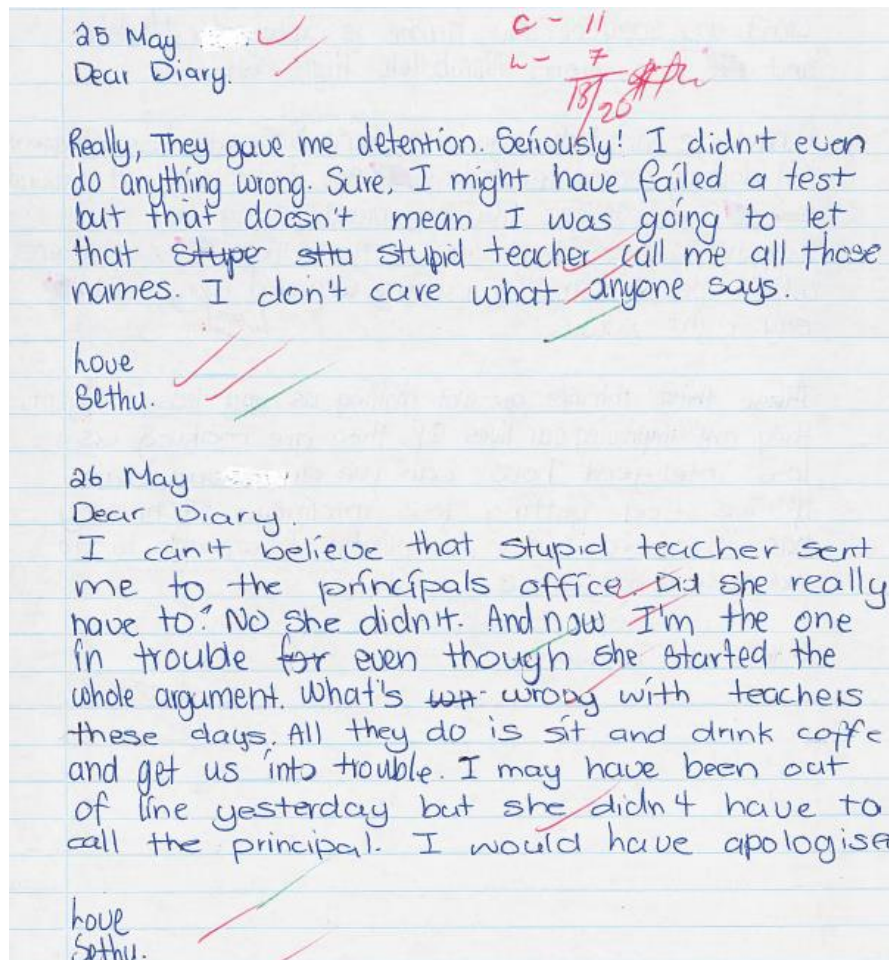 25 May
Dear Diary.
C - 11
L - 7
18/20
Really, They gave me detention. Seriously! I didn't even
do anything wrong. Sure, I might have failed a test
but that doesn't mean I was going to let
that stupe stu stupid teacher call me all those
names. I don't care what anyone says.
Love
Sethu.
26 May
Dear Diary.
I can't believe that stupid teacher sent
me to the principals office. Did she really
have to? No she didn't. And now I'm the one
in trouble for even though she started the
whole argument. What's wrong with teachers
these days. All they do is sit and drink coffe
and get us into trouble. I may have been out
of line yesterday but she didn't have to
call the principal. I would have apologise
Love
Sethu.